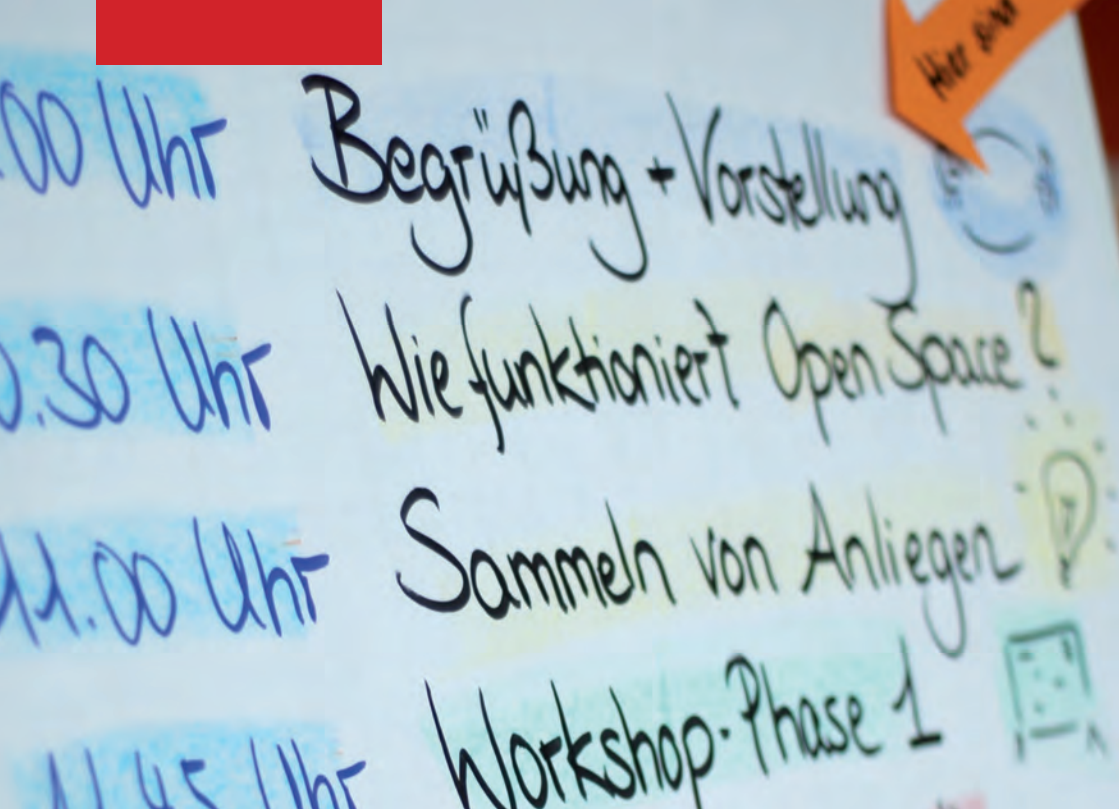 Hier sind
.00 Uhr Begrüßung + Vorstellung
0.30 Uhr Wie funktioniert Open Space?
11.00 Uhr Sammeln von Anliegen
11.45 Uhr Workshop-Phase 1